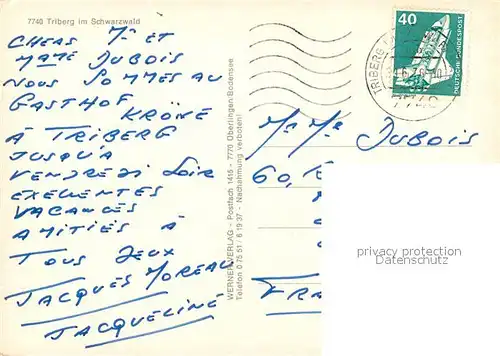 7740 Triberg im Schwarzwald
CHERS Mr ET
Mame DUBOIS
NOUS SOMMES AU
GASTHOF
KRÖNE
À TRIBERG
JUSQU'À
VENDREDI SOIR
EXELENTES
VACANCES
AMITIÉS À
TOUS DEUX
JACQUES MOREAU
JACQUELINE
WERNER VERLAG - Postfach 1415 - 7770 Überlingen/Bodensee
Telefon 0 75 51 / 6 19 37 - Nachahmung verboten!
40
DEUTSCHE BUNDESPOST
TRIBERG
7740
DUBOIS
60,
FRA
privacy protection
Datenschutz